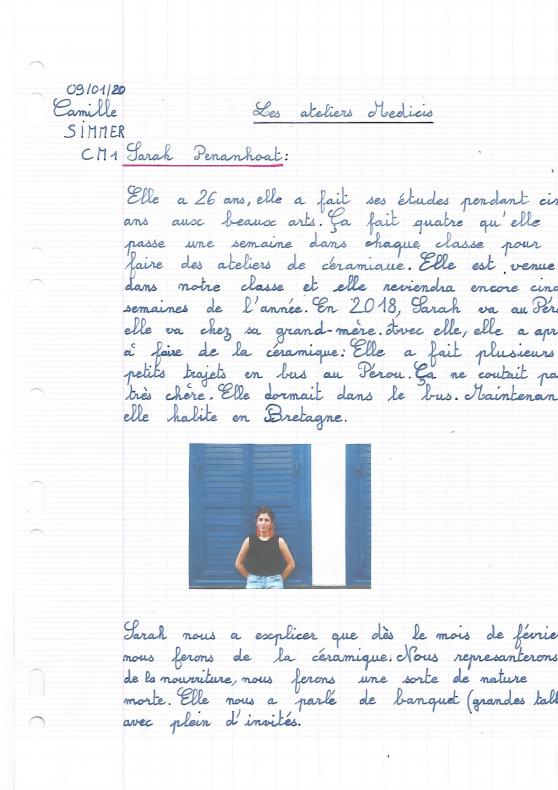 09/01/20
Camille
SIMMER
CM1
Les ateliers Medicis
Sarah Penanhoat:
Elle a 26 ans, elle a fait ses études pendant cin
ans aux beaux arts. Ça fait quatre qu'elle
passe une semaine dans chaque classe pour
faire des ateliers de céramique. Elle est venue
dans notre classe et elle reviendra encore cinq
semaines de l'année. En 2018, Sarah va au Pér
elle va chez sa grand-mère. Avec elle, elle a apr
à faire de la céramique. Elle a fait plusieurs
petits trajets en bus au Pérou. Ça ne coutait pa
très chère. Elle dormait dans le bus. Maintenan
elle habite en Bretagne.
Sarah nous a explicer que dès le mois de févrie
nous ferons de la céramique. Nous represanterons
de la nourriture, nous ferons une sorte de nature
morte. Elle nous a parlé de banquet (grandes tabl
avec plein d'invités.